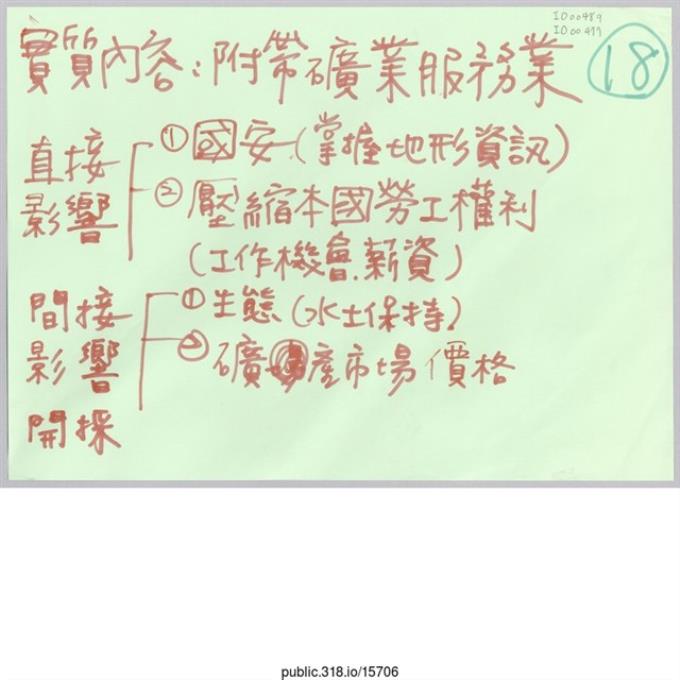 ID00489
ID00477
18
實質內容：附帶礦業服務業
直接影響
①國安(掌握地形資訊)
②壓縮本國勞工權利
(工作機會、薪資)
間接影響
①生態(水土保持)
②礦產市場價格
開採
public.318.io/15706